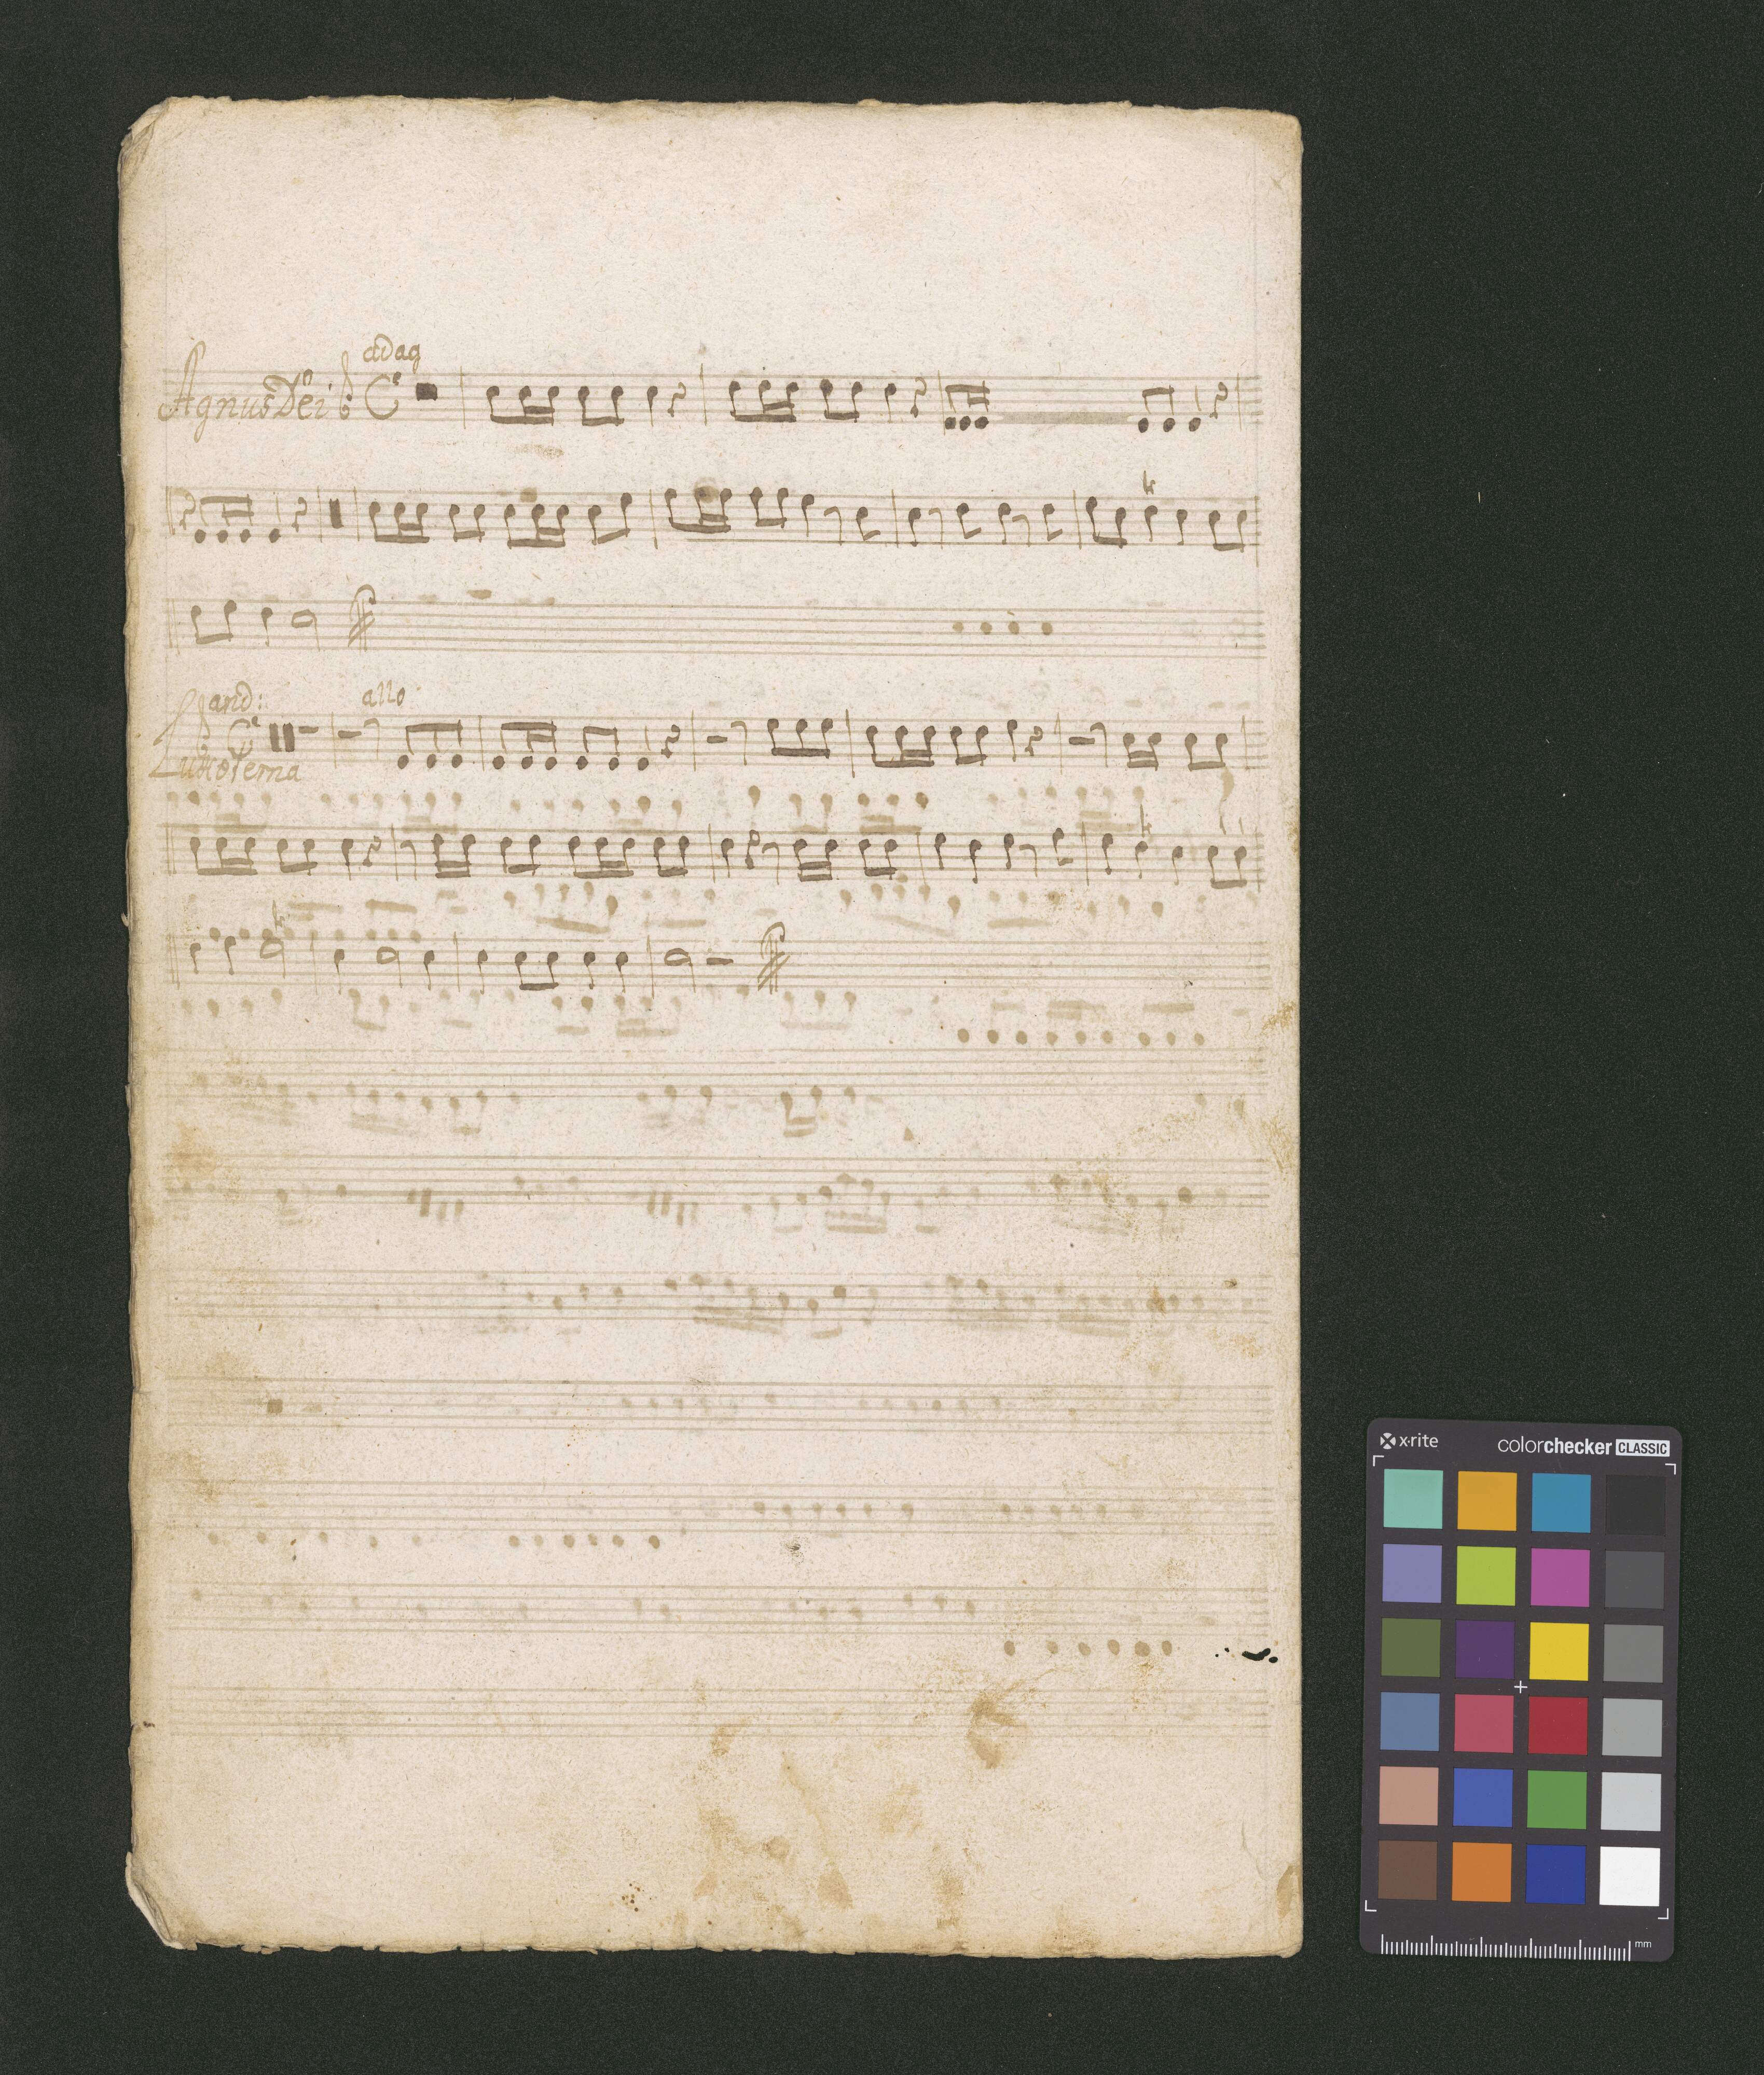 adag
Agnus Dei
and: allo
Lux æterna
x·rite colorchecker CLASSIC
mm